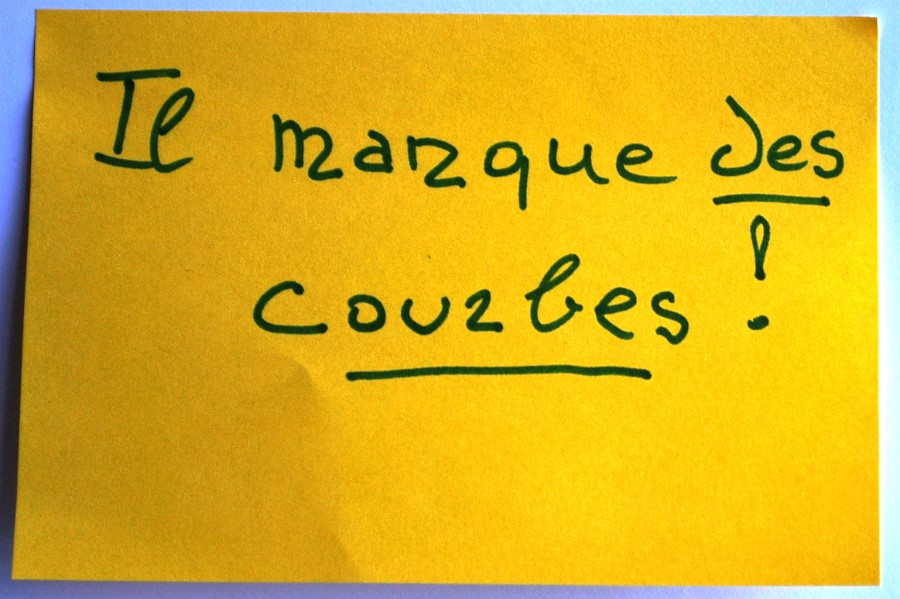 Il manque des
courbes !